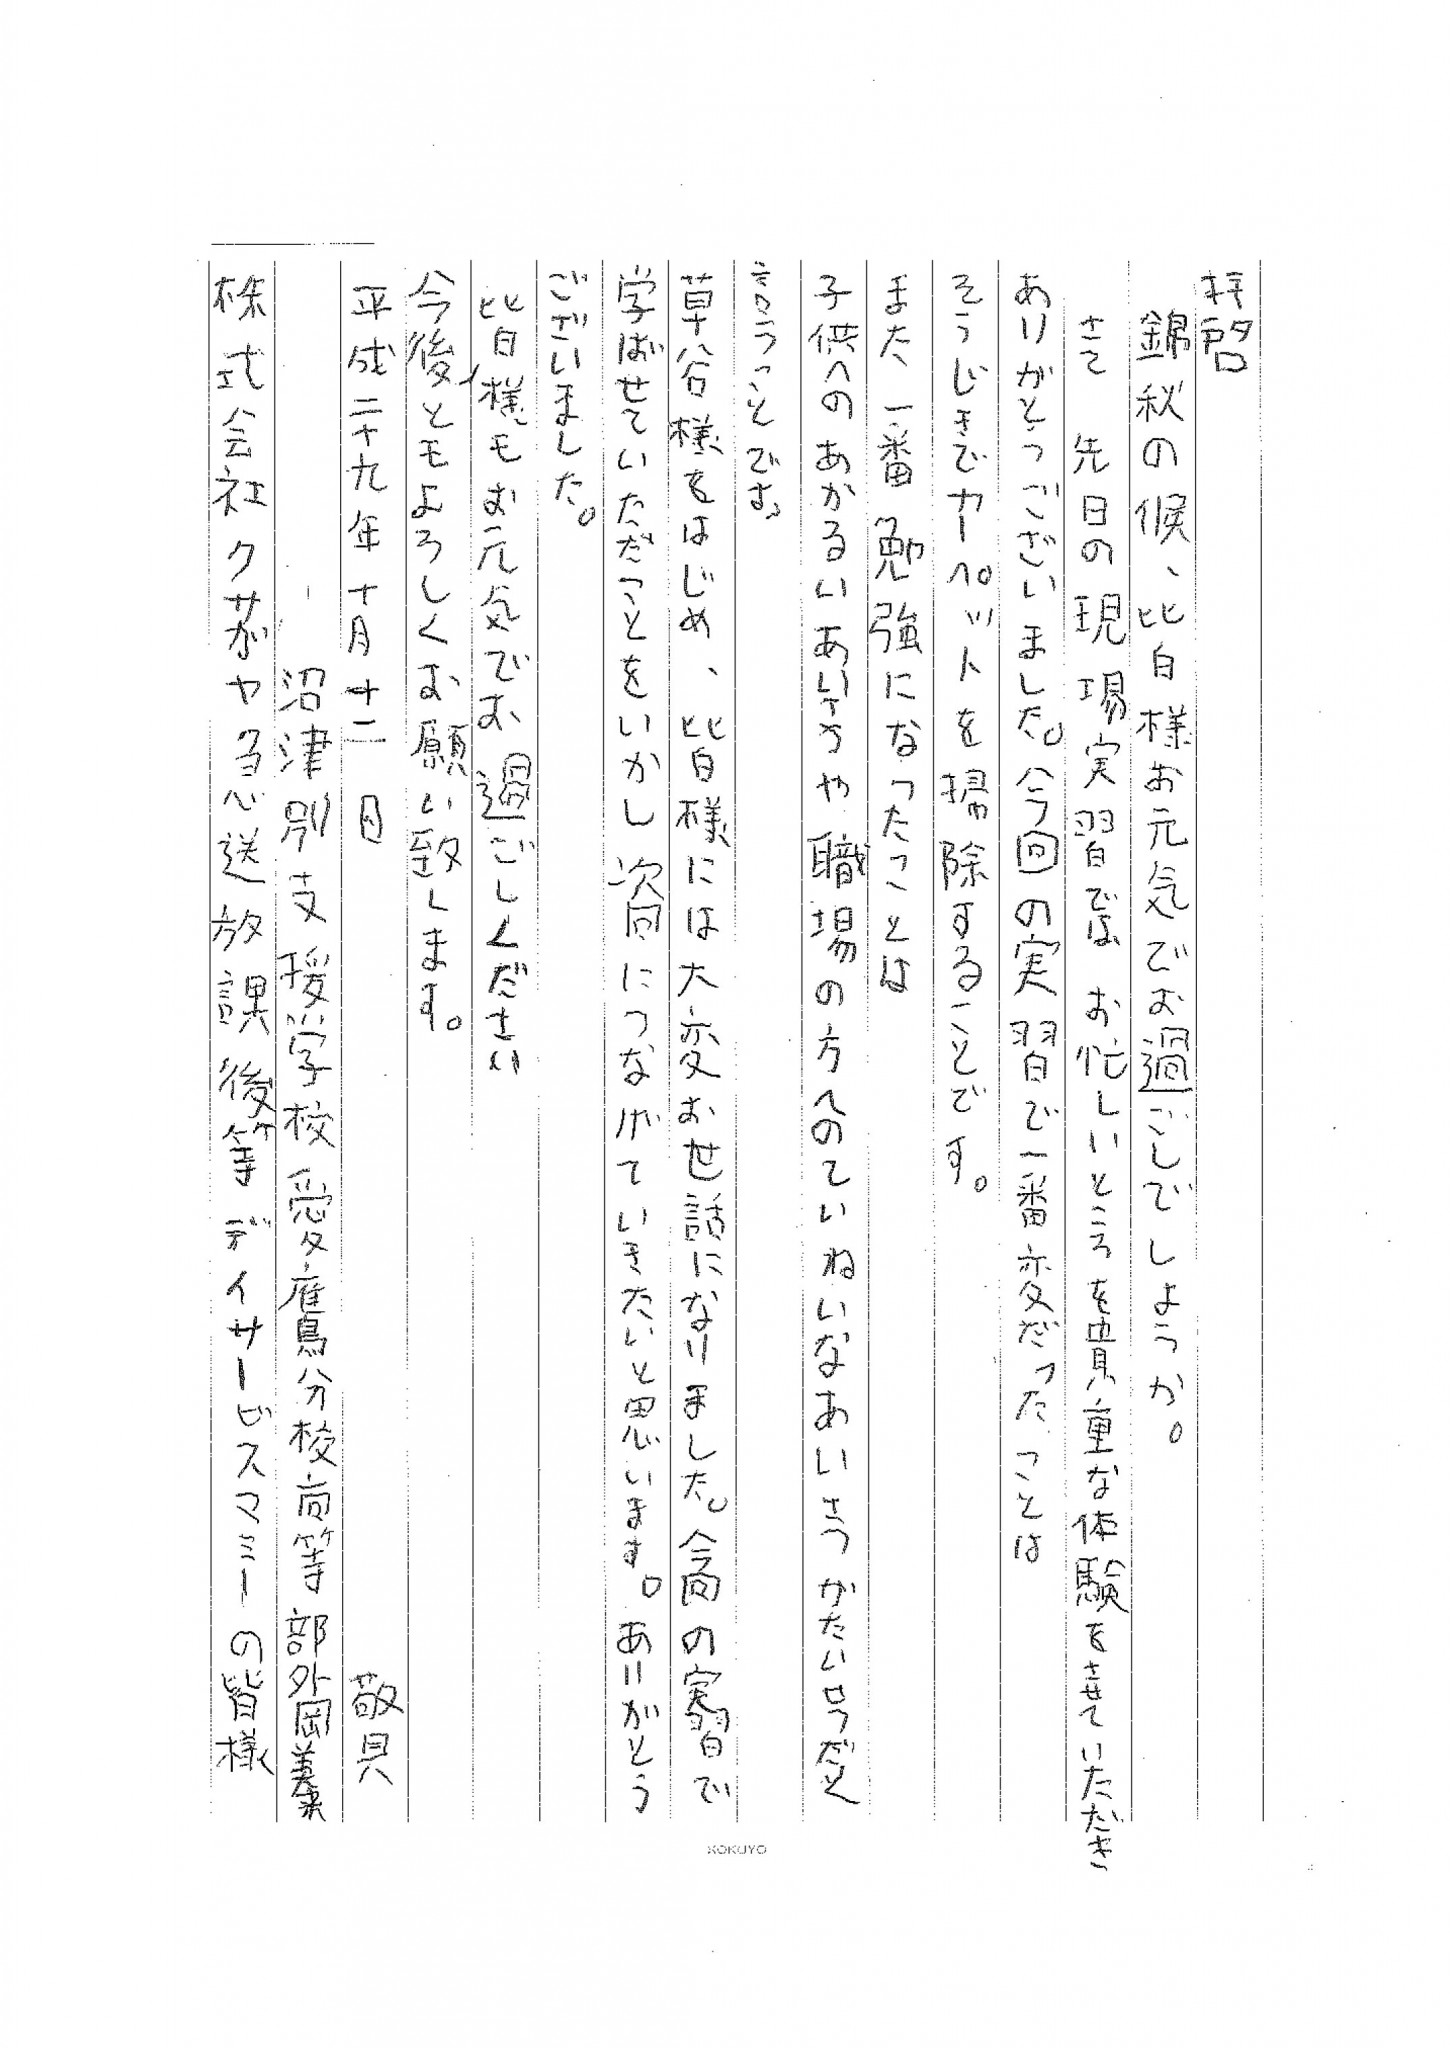 拝啓
錦秋の候、皆様お元気でお過ごしでしょうか。
さて 先日の現場実習では お忙しいところを貴重な体験をさせていただき
ありがとうございました。今回の実習で一番大変だったことは
そうじきでカーペットを掃除することです。
また 一番 勉強になったことは
子供へのあかるいあいさつや職場の方へのていねいなあいさつがたいせつだと
言うことです。
草谷様をはじめ、皆様には大変お世話になりました。今回の実習で
学ばせていただだことをいかし次回につなげていきたいと思います。ありがとう
ございました。
皆様もお元気でお過ごしください
今後ともよろしくお願い致します。
平成二十九年十月十二日 敬具
沼津特別支援学校愛鷹分校高等部外岡
株式会社クサガヤ急送放課後等デイサービスマミーの皆様
KOKUYO